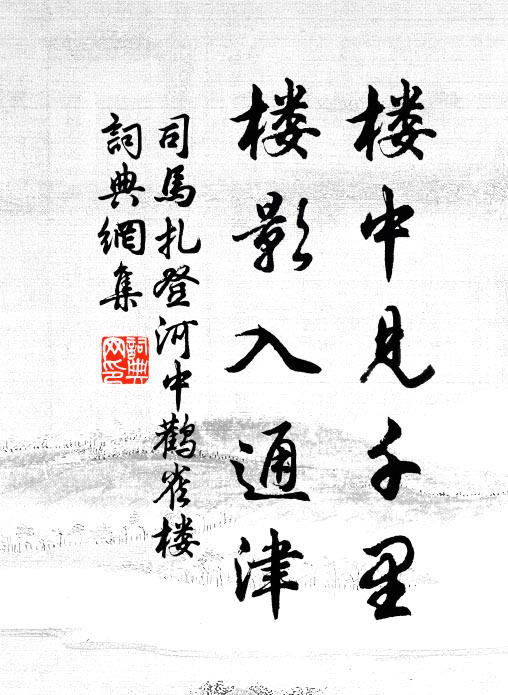 楼中見千里
楼影入通津
司馬扎登河中鸛雀楼
詞典網集
詞典
网印